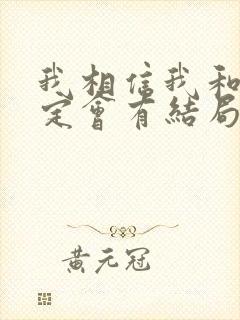 我相信我和
定會有結局
黃元冠